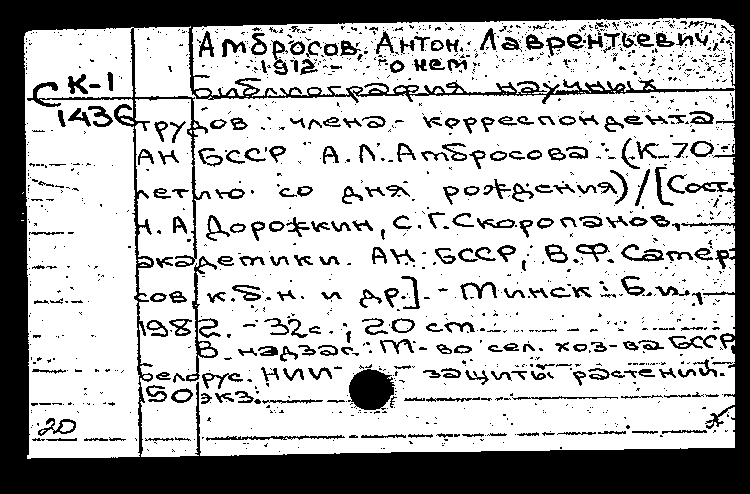 Амбросов, Антон Лаврентьевич,
1912 - о нем
С К-1
Библиография научных
1436
трудов члена-корреспондента
АН БССР А.Л. Амбросова: (К 70-
летию со дня рождения) / [Сост.
Н.А. Дорожкин, С.Г. Скоропанов,
академики АН БССР, В.Ф. Самер-
сов, к.б.н. и др.]. - Минск: Б.и.,
1982. - 32с.; 20 см.
В надзаг.: М-во сел. хоз-ва БССР,
Белорус. НИИ защиты растений.
150 экз.
20